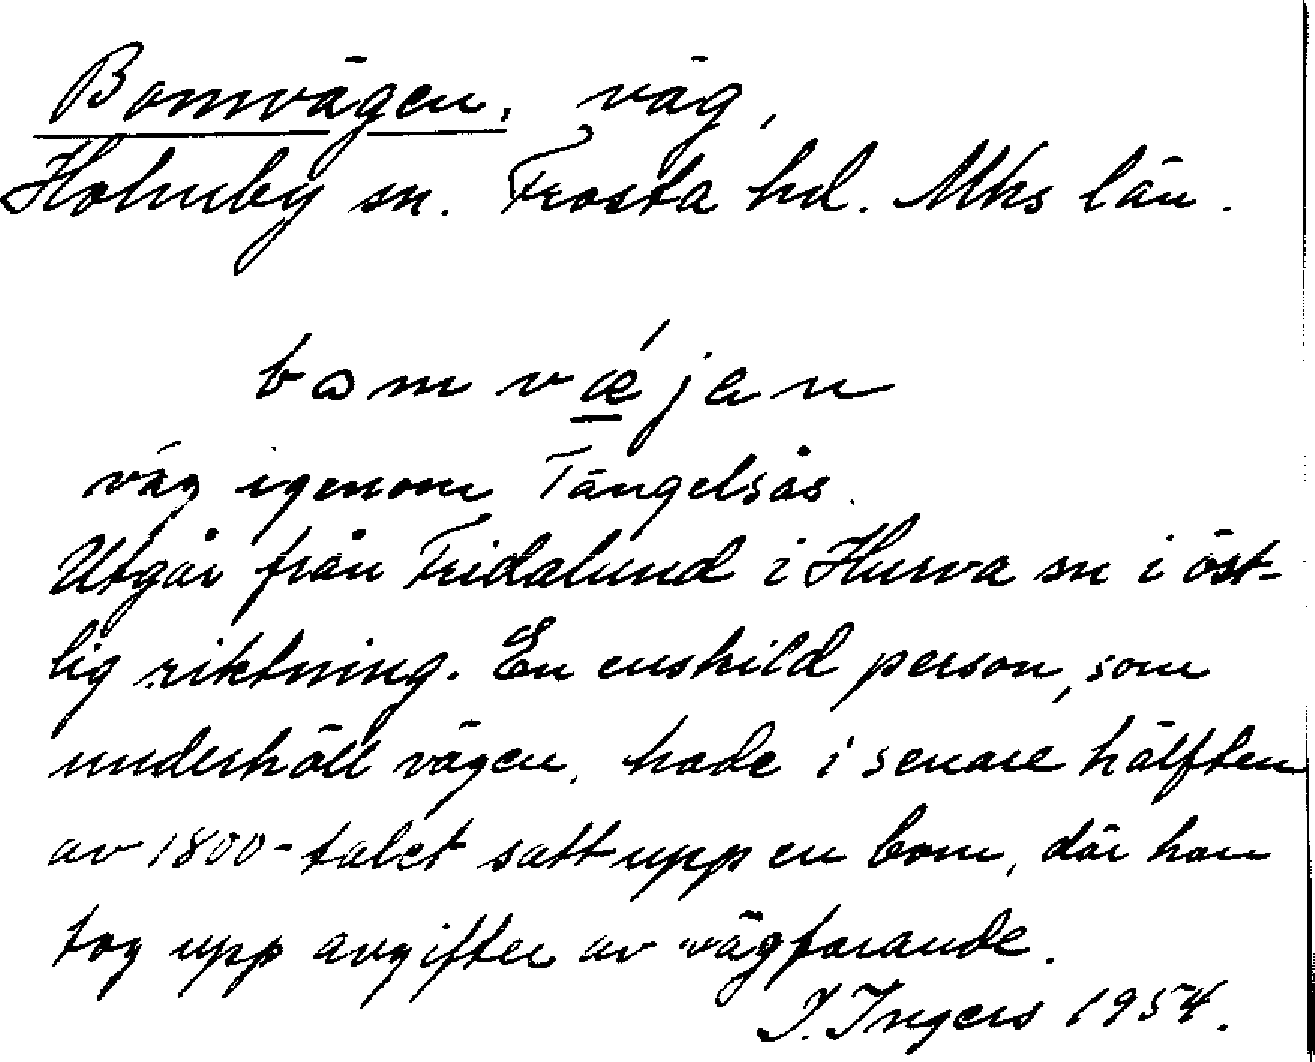 Bomvägen, väg,
Holmby sn. Frosta hd. Mhs län.
bomvǽjen
väg igenom Tängelsås.
Utgår från Fridalund i Hurva sn i öst-
lig riktning. En enskild person, som
underhöll vägen, hade i senare hälften
av 1800-talet satt upp en bom, där han
tog upp avgifter av vägfarande.
I. Ingers 1954.